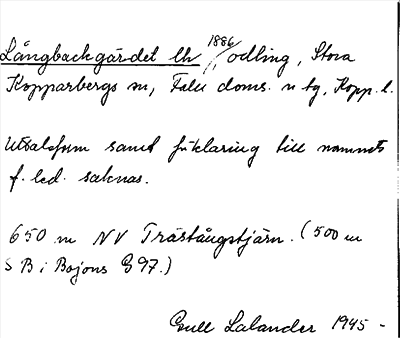 Långbackgärdet lh 1886/, odling, Stora
Kopparbergs sn, Falu doms. n tg, Kopp. l.
Uttalsform samt förklaring till namnets
f. led. saknas.
650 m NV Trästångstjärn. (500 m
S B i Bojons G97.)
Gull Lalander 1945 -